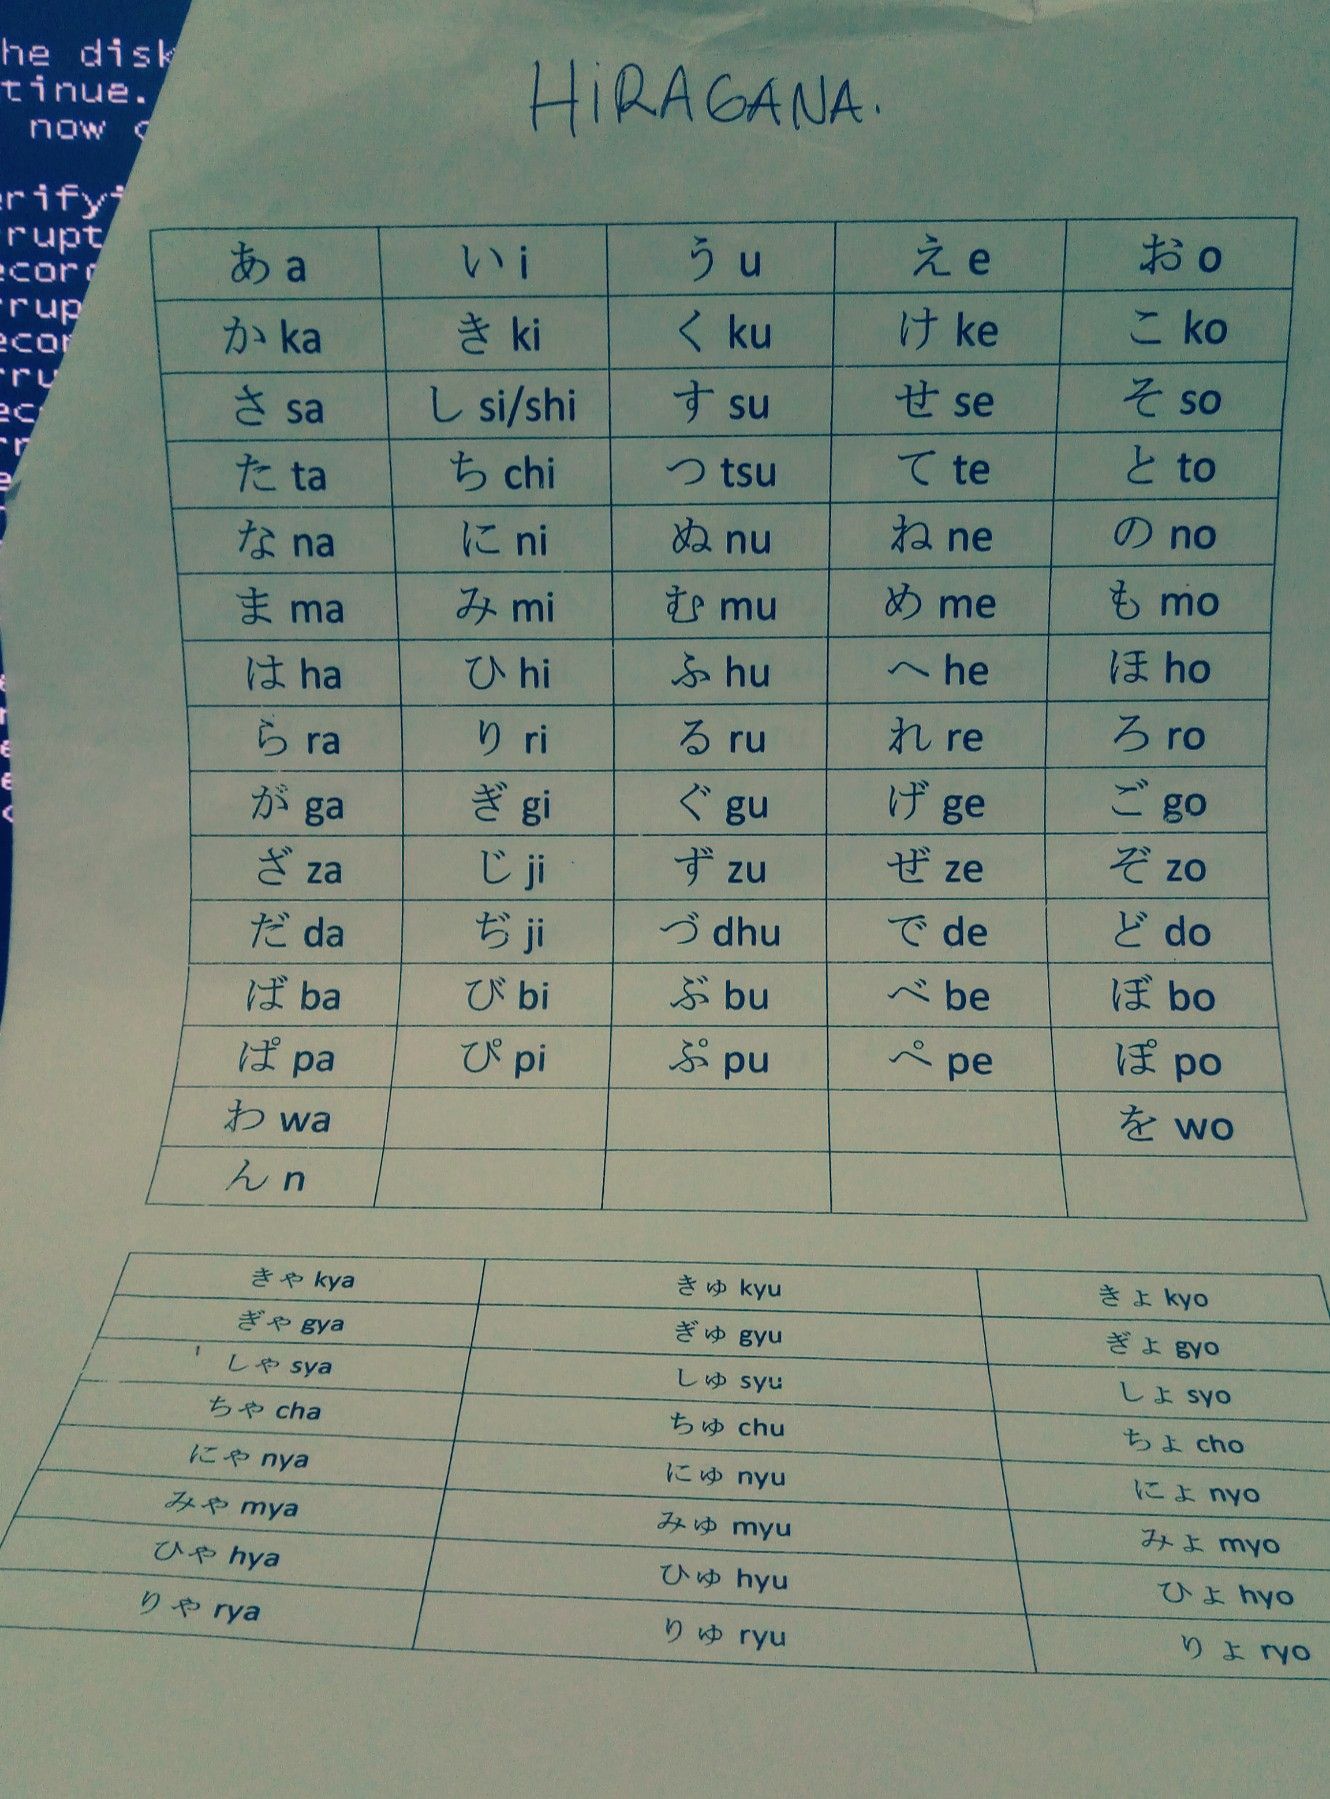 he disk
tinue.
now
erifyi
rrupt
ecor
rrup
ecor
rru
HiRAGANA.
あ a い i う u え e お o
か ka き ki く ku け ke こ ko
さ sa し si/shi す su せ se そ so
た ta ち chi つ tsu て te と to
な na に ni ぬ nu ね ne の no
ま ma み mi む mu め me も mo
は ha ひ hi ふ hu へ he ほ ho
ら ra り ri る ru れ re ろ ro
が ga ぎ gi ぐ gu げ ge ご go
ざ za じ ji ず zu ぜ ze ぞ zo
だ da ぢ ji づ dhu で de ど do
ば ba び bi ぶ bu べ be ぼ bo
ぱ pa ぴ pi ぷ pu ぺ pe ぽ po
わ wa を wo
ん n
きゃ kya きゅ kyu きょ kyo
ぎゃ gya ぎゅ gyu ぎょ gyo
しゃ sya しゅ syu しょ syo
ちゃ cha ちゅ chu ちょ cho
にゃ nya にゅ nyu にょ nyo
みゃ mya みゅ myu みょ myo
ひゃ hya ひゅ hyu ひょ hyo
りゃ rya りゅ ryu りょ ryo